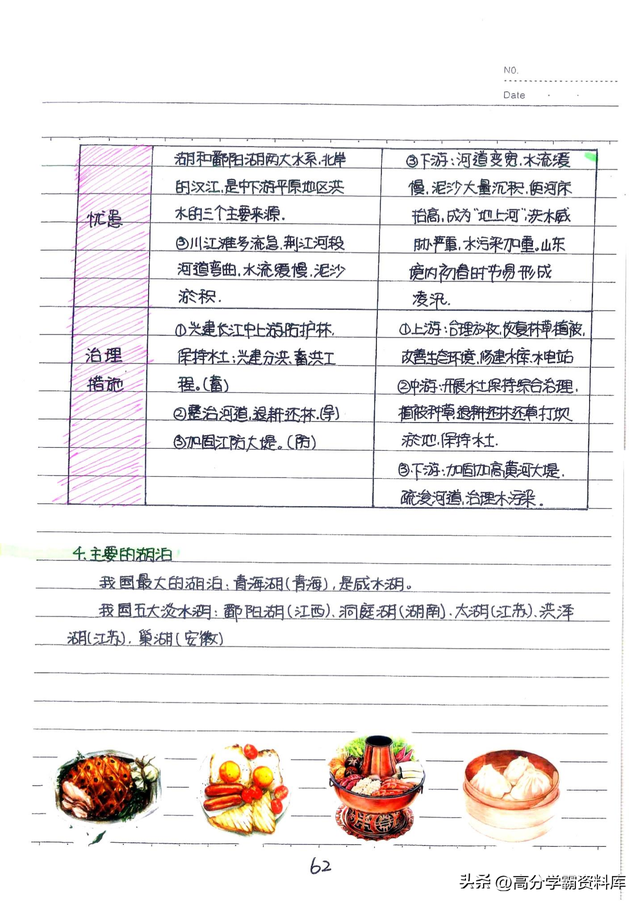 NO.
Date
忧患
湖和鄱阳湖两大水系,北岸
的汉江,是中下游平原地区洪
水的三个主要来源.
③川江滩多流急,荆江河段
河道弯曲,水流缓慢,泥沙
淤积.
③下游:河道变宽,水流缓
慢,泥沙大量沉积,使河床
抬高,成为“地上河”洪水威
胁严重,水污染加重。山东
境内初春时节易形成
凌汛.
治理
措施
①兴建长江中上游防护林,
保持水土;兴建分洪、蓄洪工
程。(蓄)
②整治河道,退耕还林.(导)
③加固江防大堤。(防)
①上游:合理放牧,恢复林草植被,
改善生态环境,修建水库、水电站
②中游:开展水土保持综合治理,
植被种草,退耕还林还草,打坝
淤地,保持水土.
③下游:加固加高黄河大堤,
疏浚河道,治理水污染.
4.主要的湖泊
我国最大的湖泊:青海湖(青海),是咸水湖。
我国五大淡水湖:鄱阳湖(江西)、洞庭湖(湖南)、太湖(江苏)、洪泽
湖(江苏)、巢湖(安徽)
62
头条@高分学霸资料库